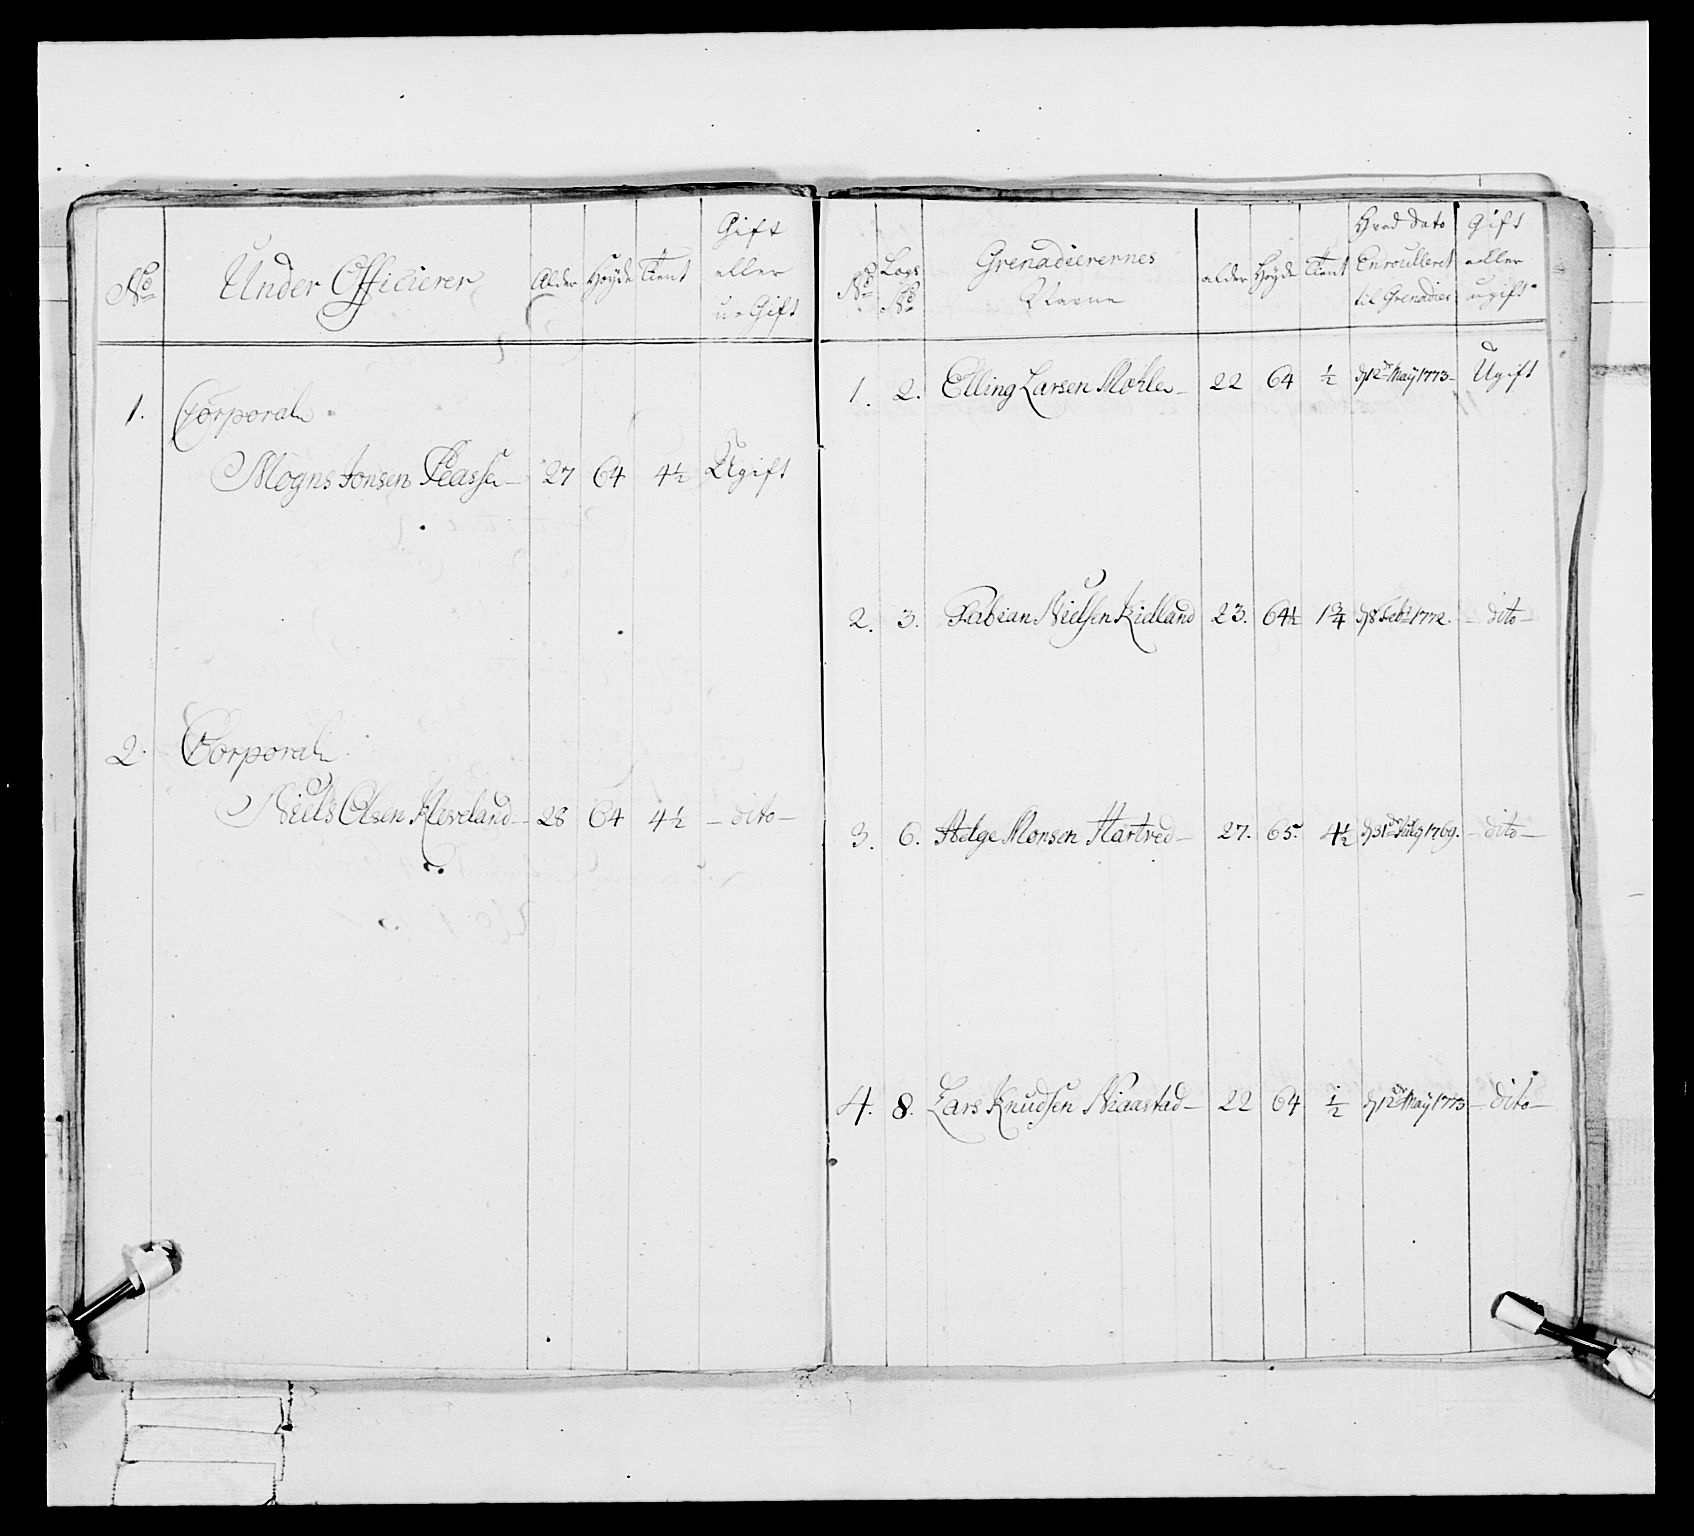 No Under Officierer Alder Høyde Tient Gift eller u-Gift
1. Corporal
Mogns Jonsen 27 64 4½ Ugift
2. Corporal
Niels Olsen Kleveland 28 64 4½ dito
No Logs No Grenadeerernes Navne alder Høyde Tient Hvad Dato Enroulleret til Grenadier Gift eller ugift
1. 2. Elling Larsen 22 64 ½ d 12te May 1773 Ugift
2. 3. Fabian Nielsen Kidland 23. 64½ 1¾ d 8 Febr 1772. dito
3. 6. Helge Monsen Hartved 27. 65. 4½ d 31te July 1769. dito
4. 8. Lars Knudsen 22 64 ½ d 12te May 1773 dito